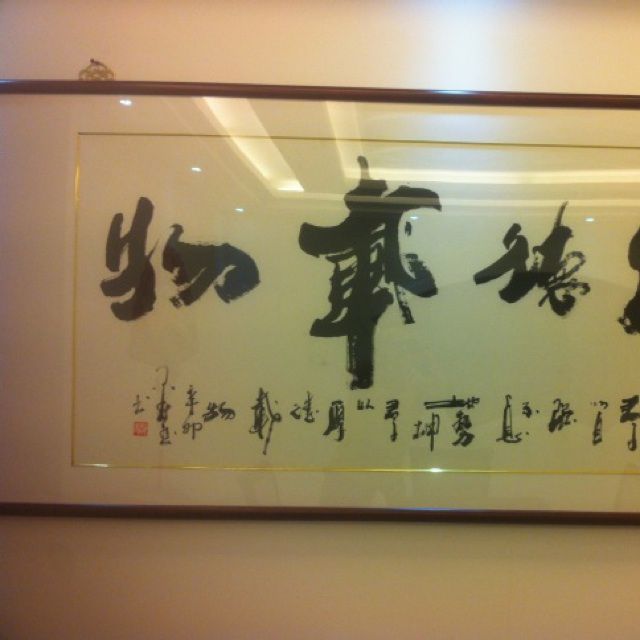 德載物
君子以自強不息地勢坤君子以厚德載物
辛卯
书